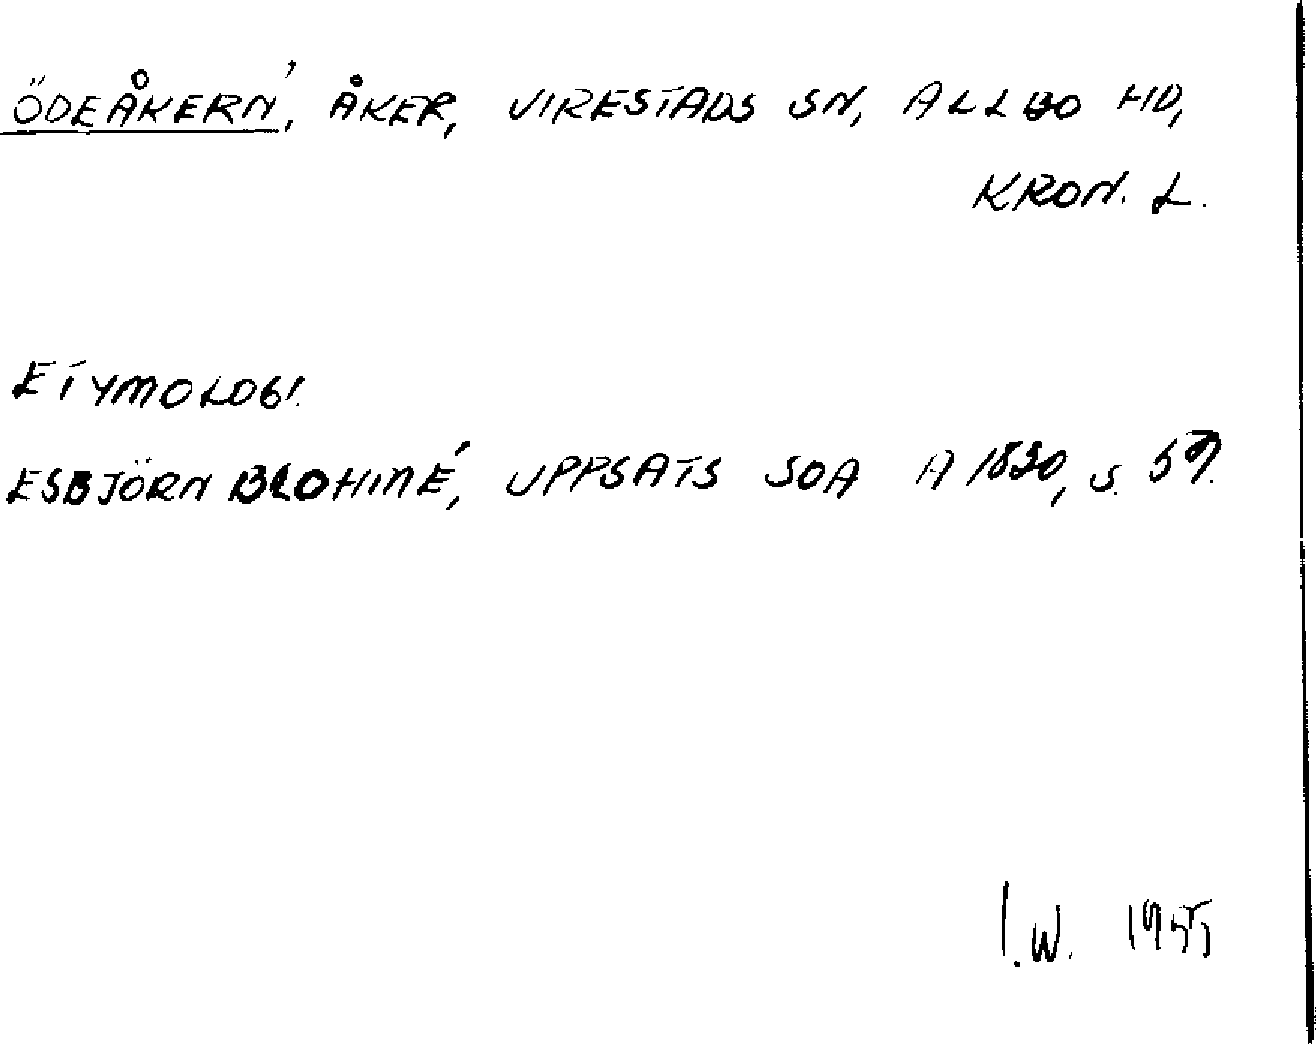 ÖDEÅKERN', ÅKER, VIRESTADS SN, ALLBO HD,
KRON. L.
ETYMOLOGI.
ESBJÖRN BLOHMÉ, UPPSATS SOA A 1830, S. 57.
I.W. 1955